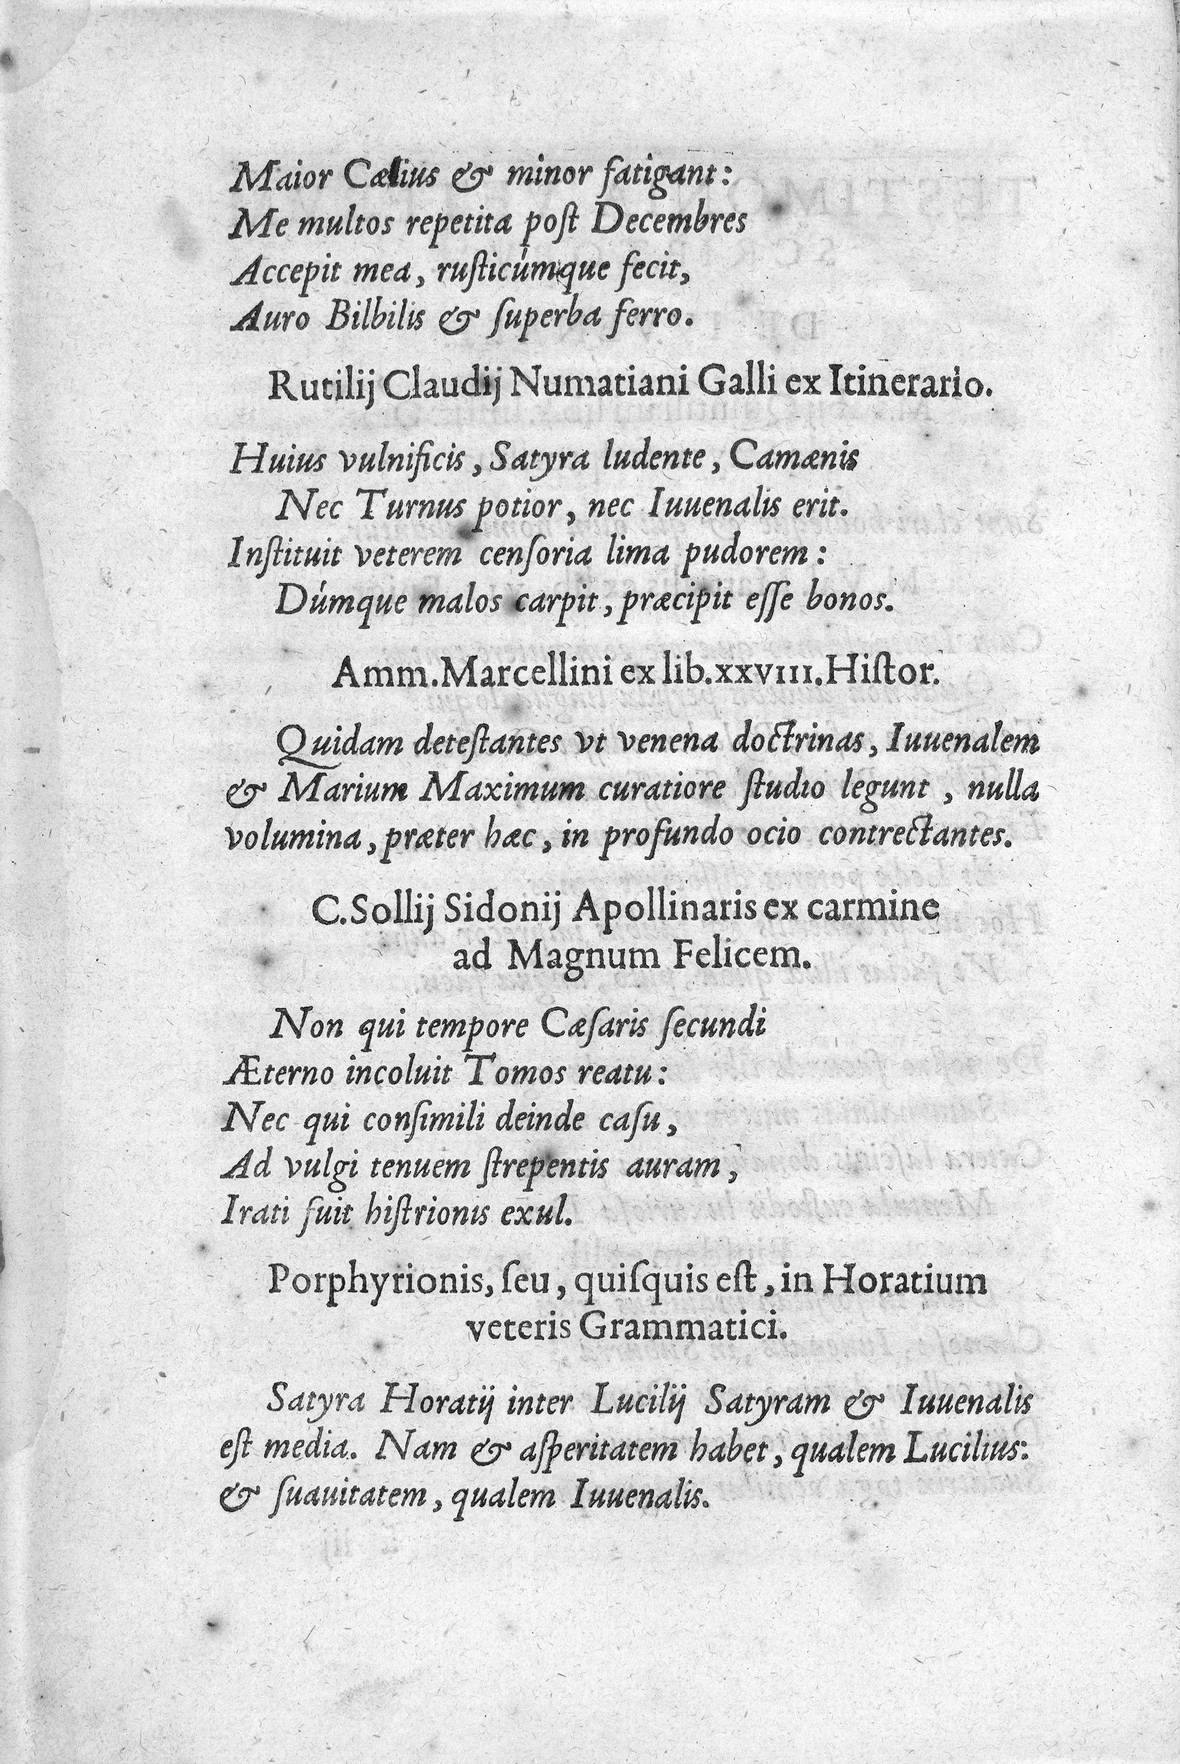 Maior Cælius & minor fatigant:
Me multos repetita poſt Decembres
Accepit mea, ruſticúmque fecit,
Auro Bilbilis & ſuperba ferro.
Rutilij Claudij Numatiani Galli ex Itinerario.
Huius vulnificis, Satyra ludente, Camænis
Nec Turnus potior, nec Iuuenalis erit.
Inſtituit veterem cenſoria lima pudorem:
Dúmque malos carpit, præcipit eſſe bonos.
Amm. Marcellini ex lib. xxvııı. Hiſtor.
Quidam deteſtantes vt venena doctrinas, Iuuenalem
& Marium Maximum curatiore ſtudio legunt, nulla
volumina, præter hæc, in profundo ocio contrectantes.
C. Sollij Sidonij Apollinaris ex carmine
ad Magnum Felicem.
Non qui tempore Cæſaris ſecundi
Æterno incoluit Tomos reatu:
Nec qui conſimili deinde caſu,
Ad vulgi tenuem ſtrepentis auram,
Irati fuit hiſtrionis exul.
Porphyrionis, ſeu, quiſquis eſt, in Horatium
veteris Grammatici.
Satyra Horatij inter Lucilij Satyram & Iuuenalis
eſt media. Nam & aſperitatem habet, qualem Lucilius:
& ſuauitatem, qualem Iuuenalis.